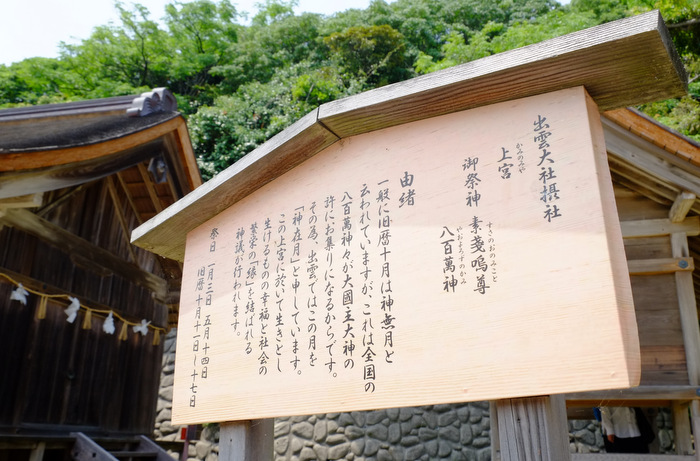 出雲大社摂社
上宮
かみのみや
御祭神 素戔嗚尊
すさのおのみこと
八百萬神
やおよろずのかみ
由緒
一般に旧暦十月は神無月と
云われていますが、これは全国の
八百萬神々が大國主大神の
許にお集りになるからです。
その為、出雲ではこの月を
「神在月」と申しています。
この上宮に於いて生きとし
生けるもの幸福と社会の
繁栄の「縁」を結ばれる
神議が行われます。
祭日 一月三日 五月十四日
旧暦十月十一日～十七日